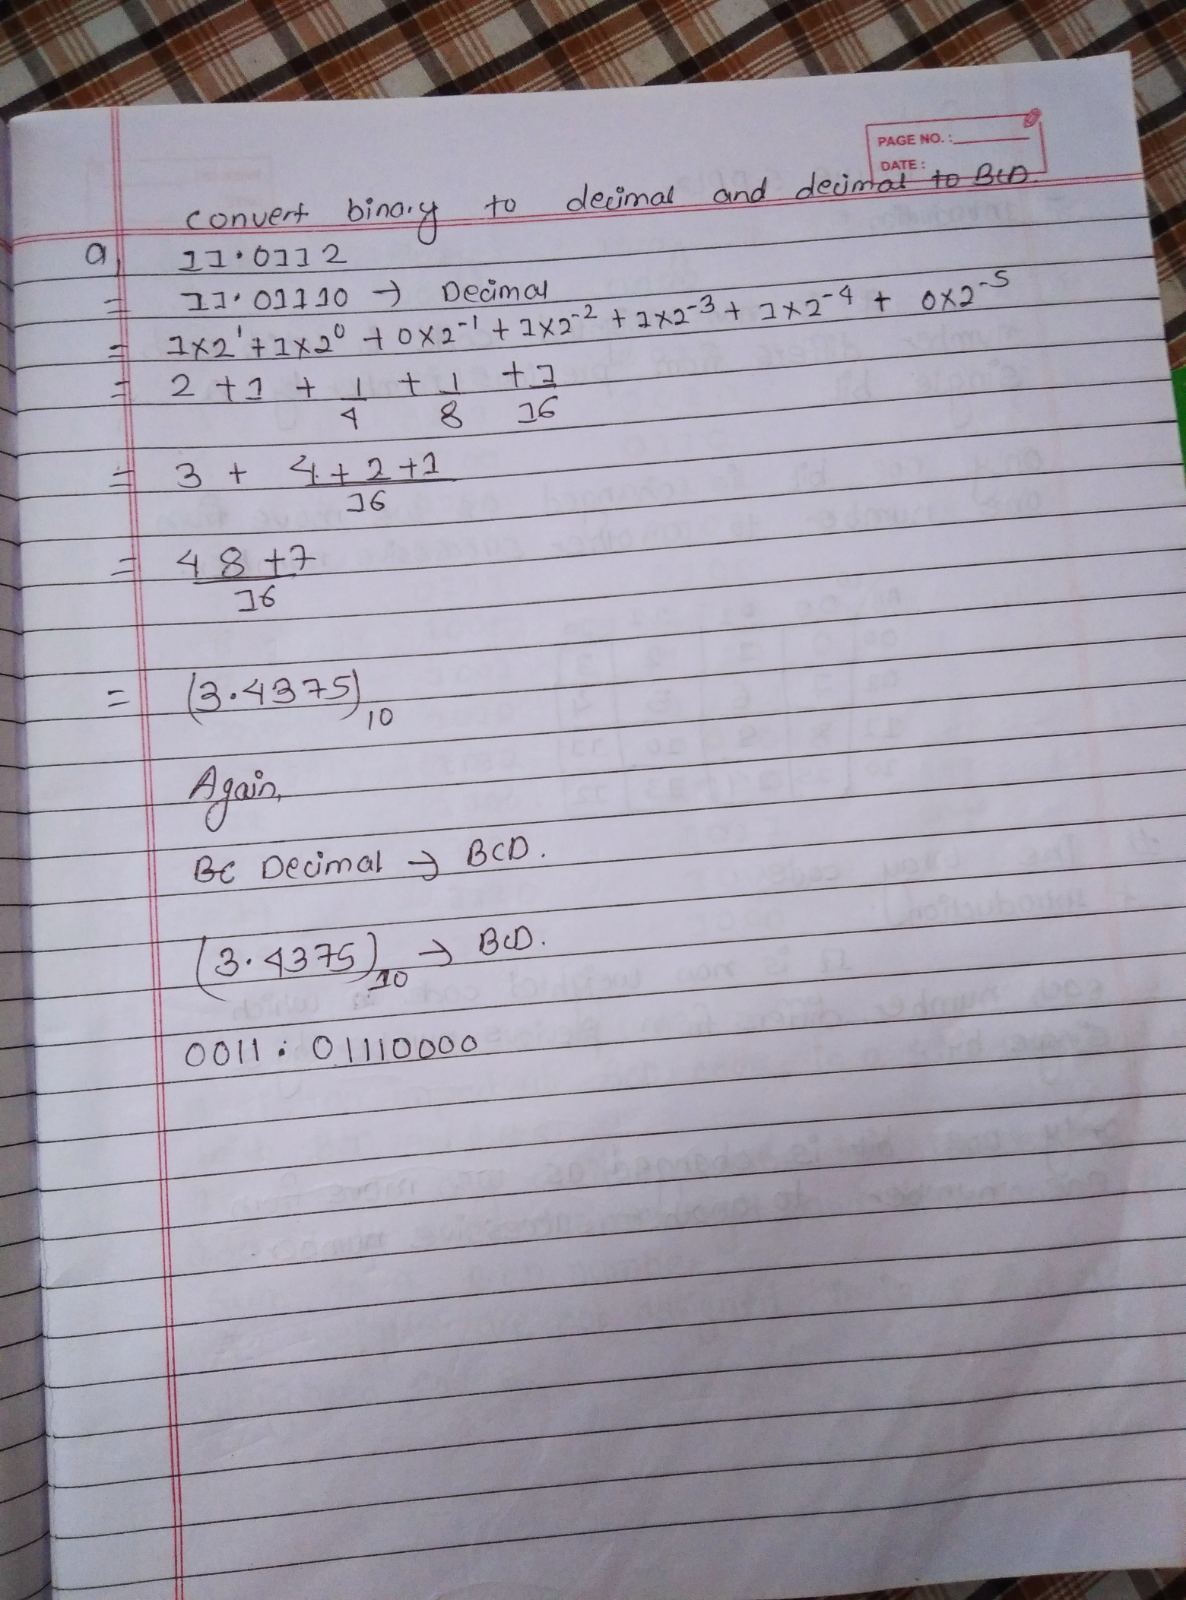 PAGE NO.:
DATE:
convert binary to decimal and decimal to BCD.
a, 11.0112
= 11.01110 → Decimal
= 1×2¹ + 1×2⁰ + 0×2⁻¹ + 1×2⁻² + 1×2⁻³ + 1×2⁻⁴ + 0×2⁻⁵
= 2 + 1 + 1/4 + 1/8 + 1/16
= 3 + (4+2+1)/16
= (48+7)/16
= (3.4375)₁₀
Again,
BC Decimal → BCD.
(3.4375)₁₀ → BCD.
0011 . 01110000